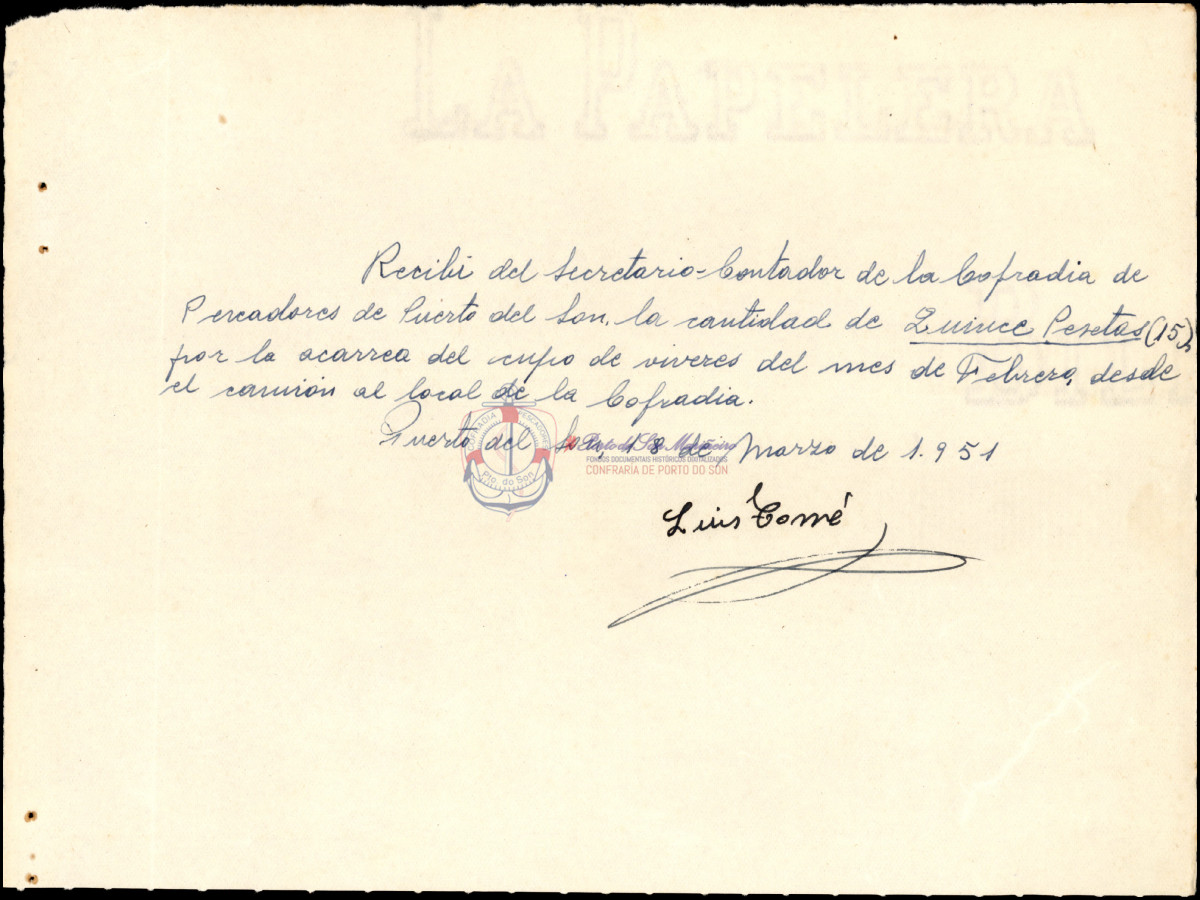 LA PAPELERA
Recibí del Secretario-Contador de la Cofradia de
Pescadores de Puerto del Son, la cantidad de Quince Pesetas (15),
por la acarrea del cupo de viveres del mes de Febrero, desde
el camión al local de la Cofradia.
Puerto del Son, 18 de Marzo de 1.951
COFRADIA PESCADORES
Pto. do Son
Porto do Son Mariñeiro
FONDOS DOCUMENTAIS HISTÓRICOS DIXITALIZADOS
CONFRARÍA DE PORTO DO SON
Luis Tomé